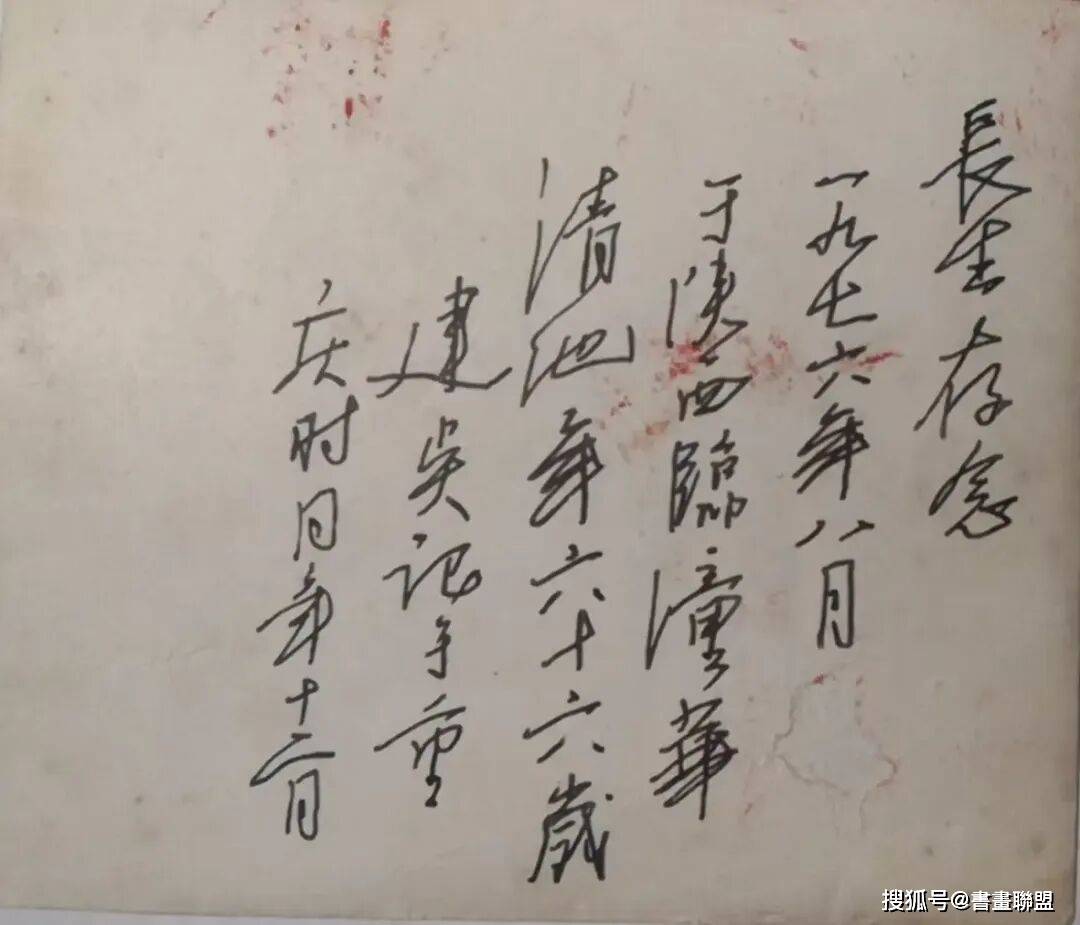 長生存念
一九七六年八月
于陕西臨潼華
清池年六十六歲
建吴记于重
庆时同年十二月
搜狐号@書畫聯盟